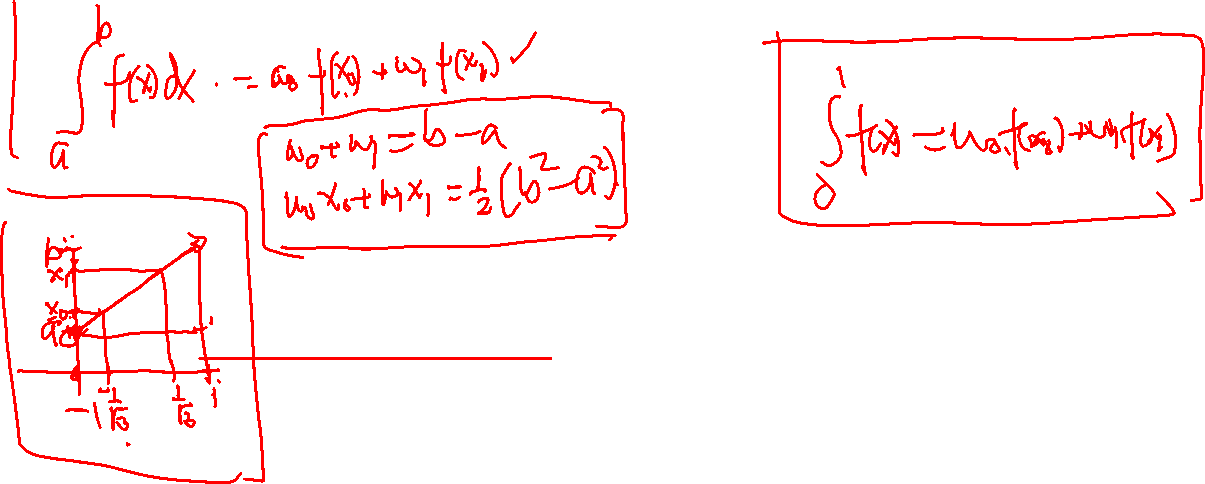 ∫_a^b f(x) dx . = ω₀ f(x₀) + ω₁ f(x₁) ✓
ω₀ + ω₁ = b - a
ω₀ x₀ + ω₁ x₁ = 1/2 (b² - a²)
∫_0^1 f(x) = ω₀ f(x₀) + ω₁ f(x₁)
b
x₁
x₀
a
-1 -1/√3 1/√3 1